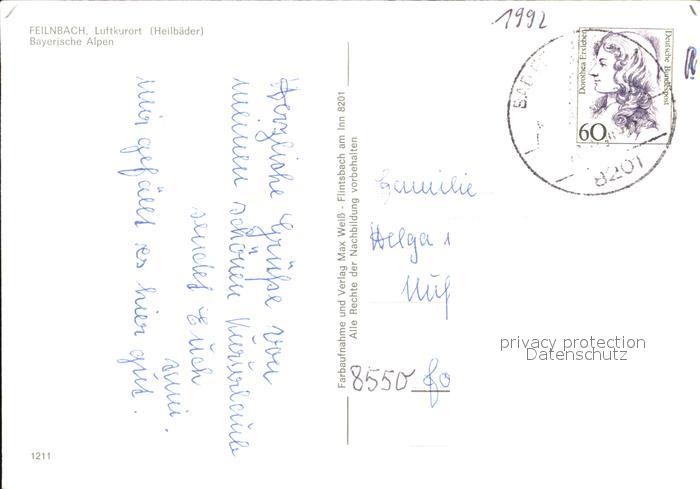 FEILNBACH, Luftkurort (Heilbäder)
Bayerische Alpen
1992
Dorothea Erxleben
Deutsche Bundespost
60
BAD
8201
Herzliche Grüße von
meinem schönen Kururlaub
sendet Euch
mir gefällt es hier gut.
Farbaufnahme und Verlag Max Weiß - Flintsbach am Inn 8201
Alle Rechte der Nachbildung vorbehalten
Familie
Helga
8550 Fo
privacy protection
Datenschutz
1211